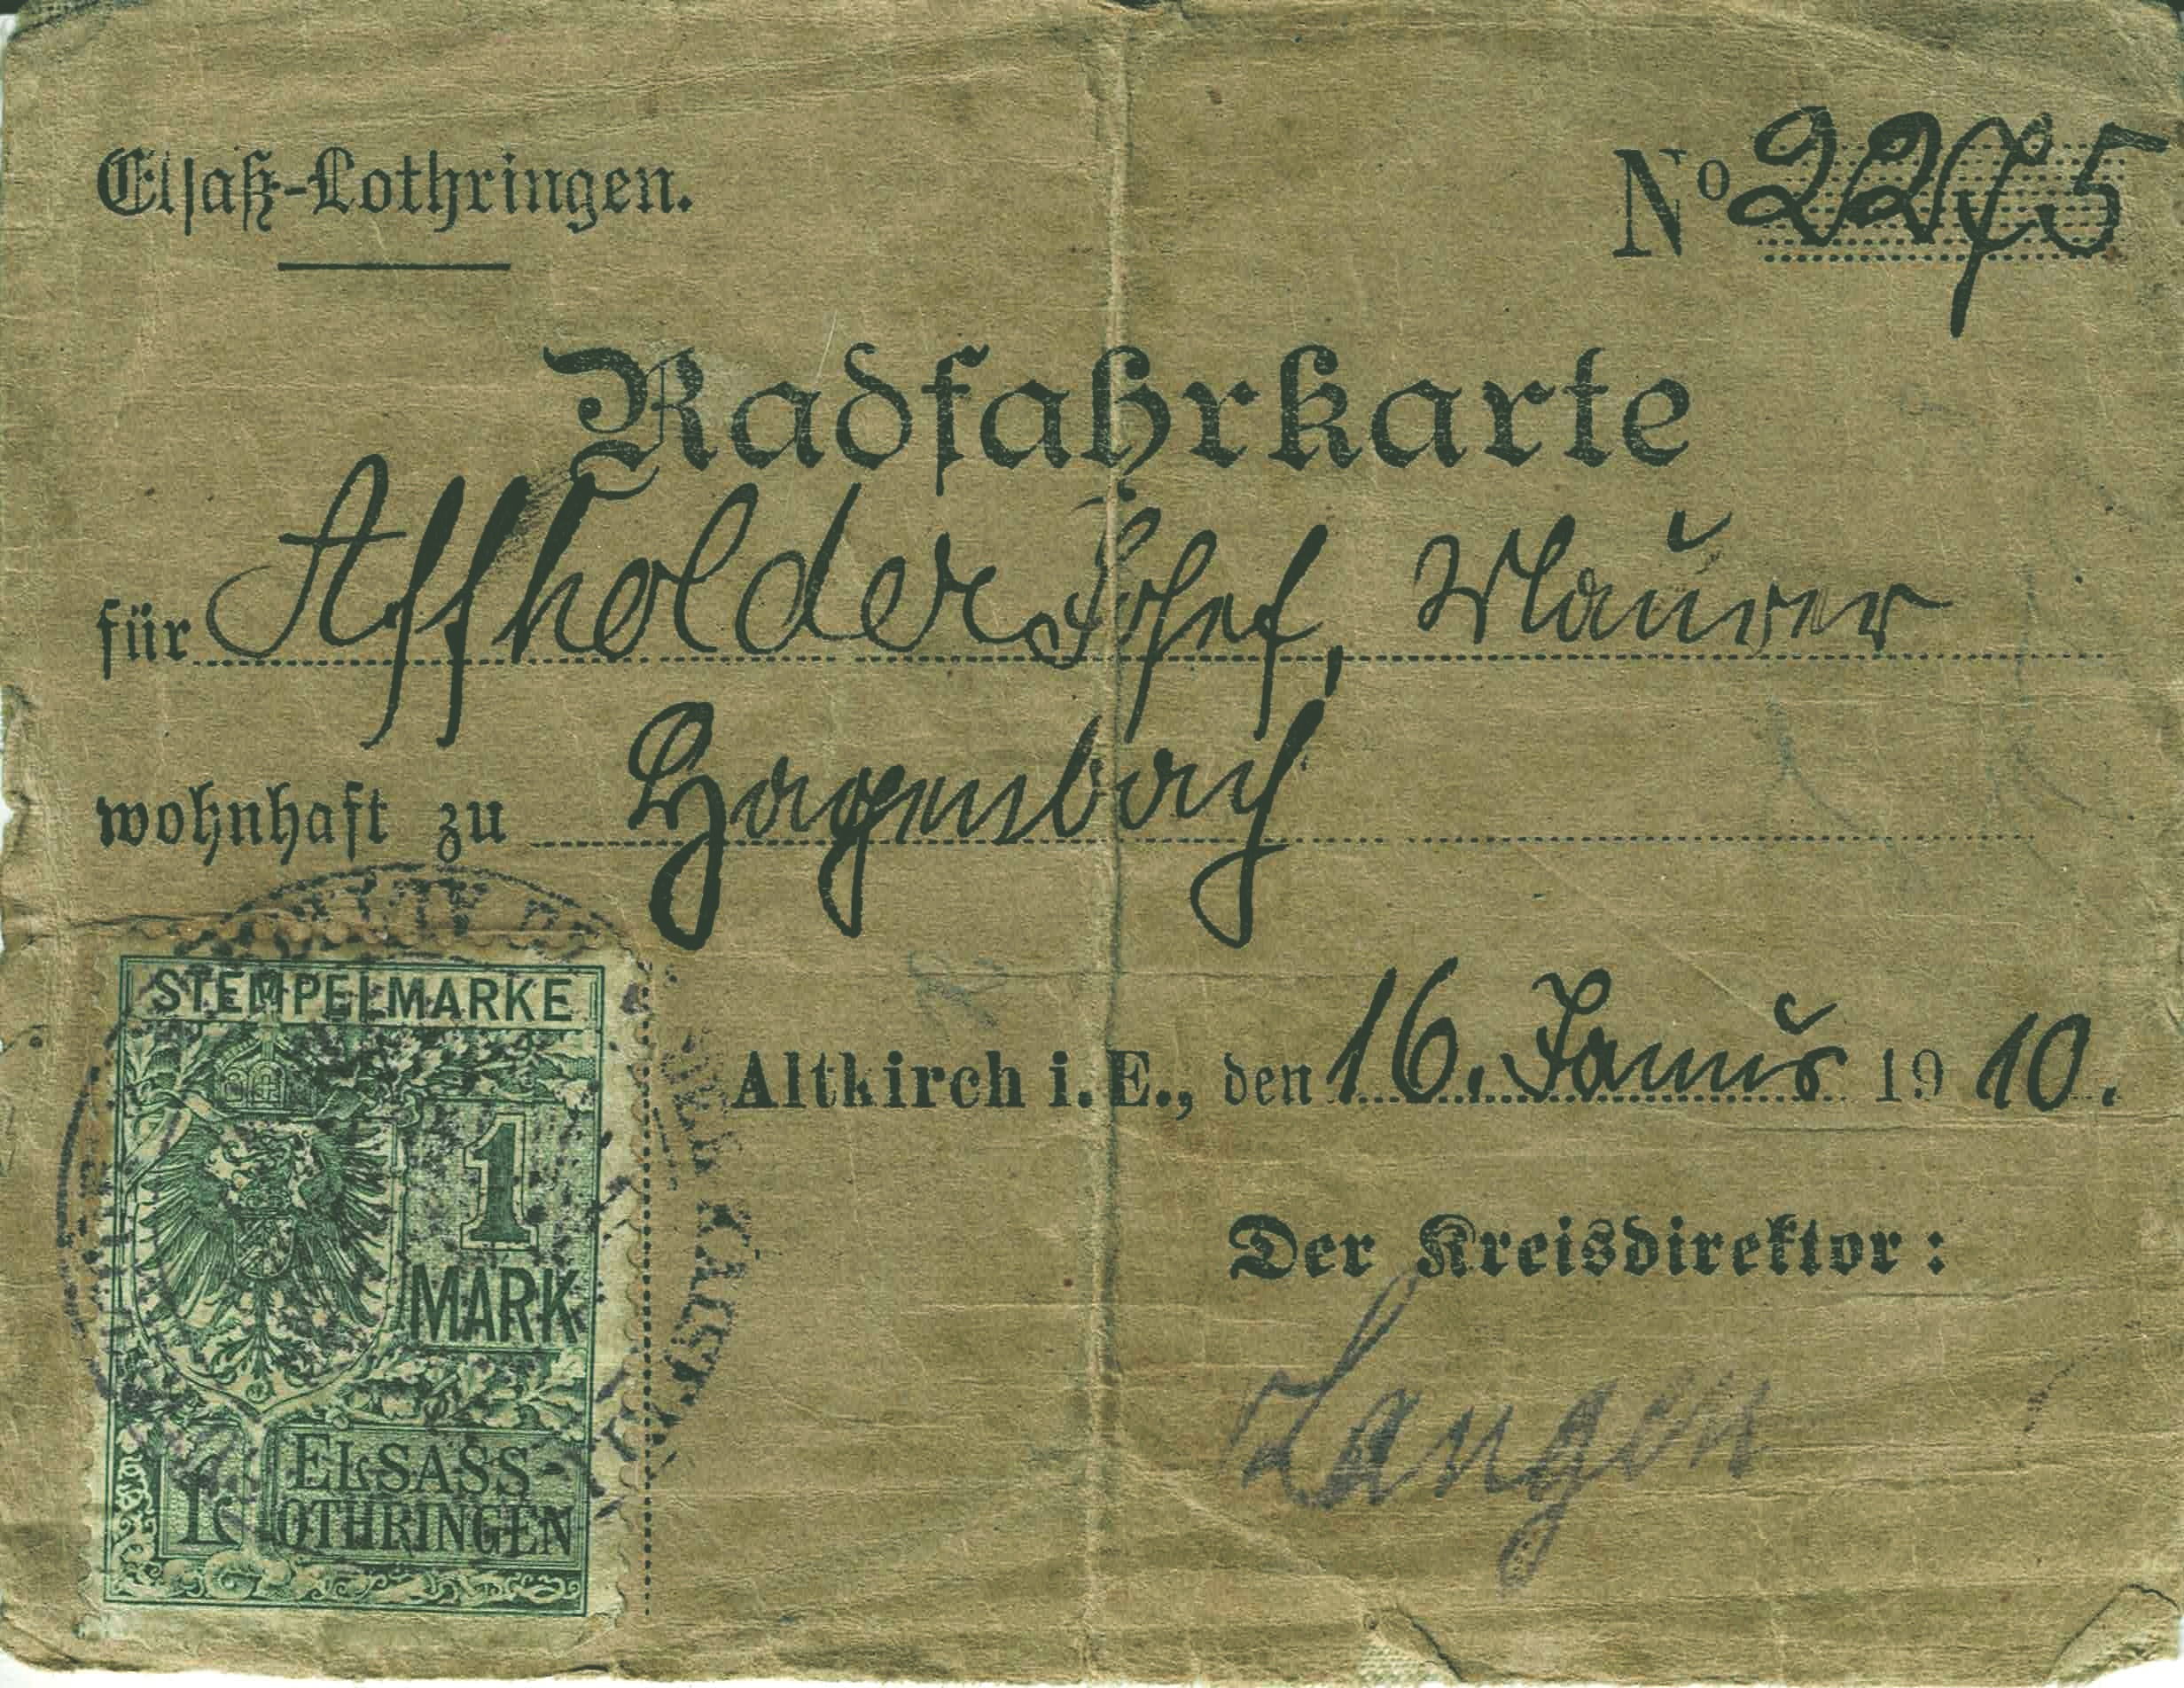 Elsaß-Lothringen.
Nº 2275
Radfahrkarte
für Affholder Josef, Maurer
wohnhaft zu Hagenbach
Altkirch i. E., den 16. Januar 1910.
Der Kreisdirektor:
Langen
STEMPELMARKE
1
MARK
ELSASS-
LOTHRINGEN